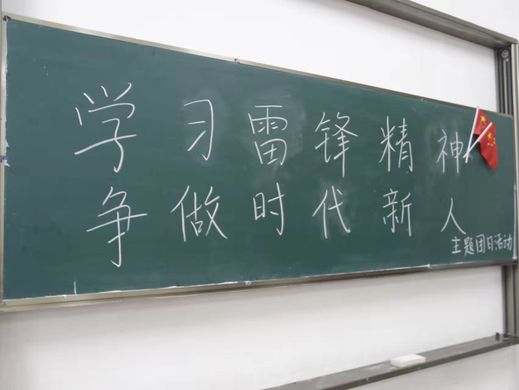 学习雷锋精神
争做时代新人
主题团日活动